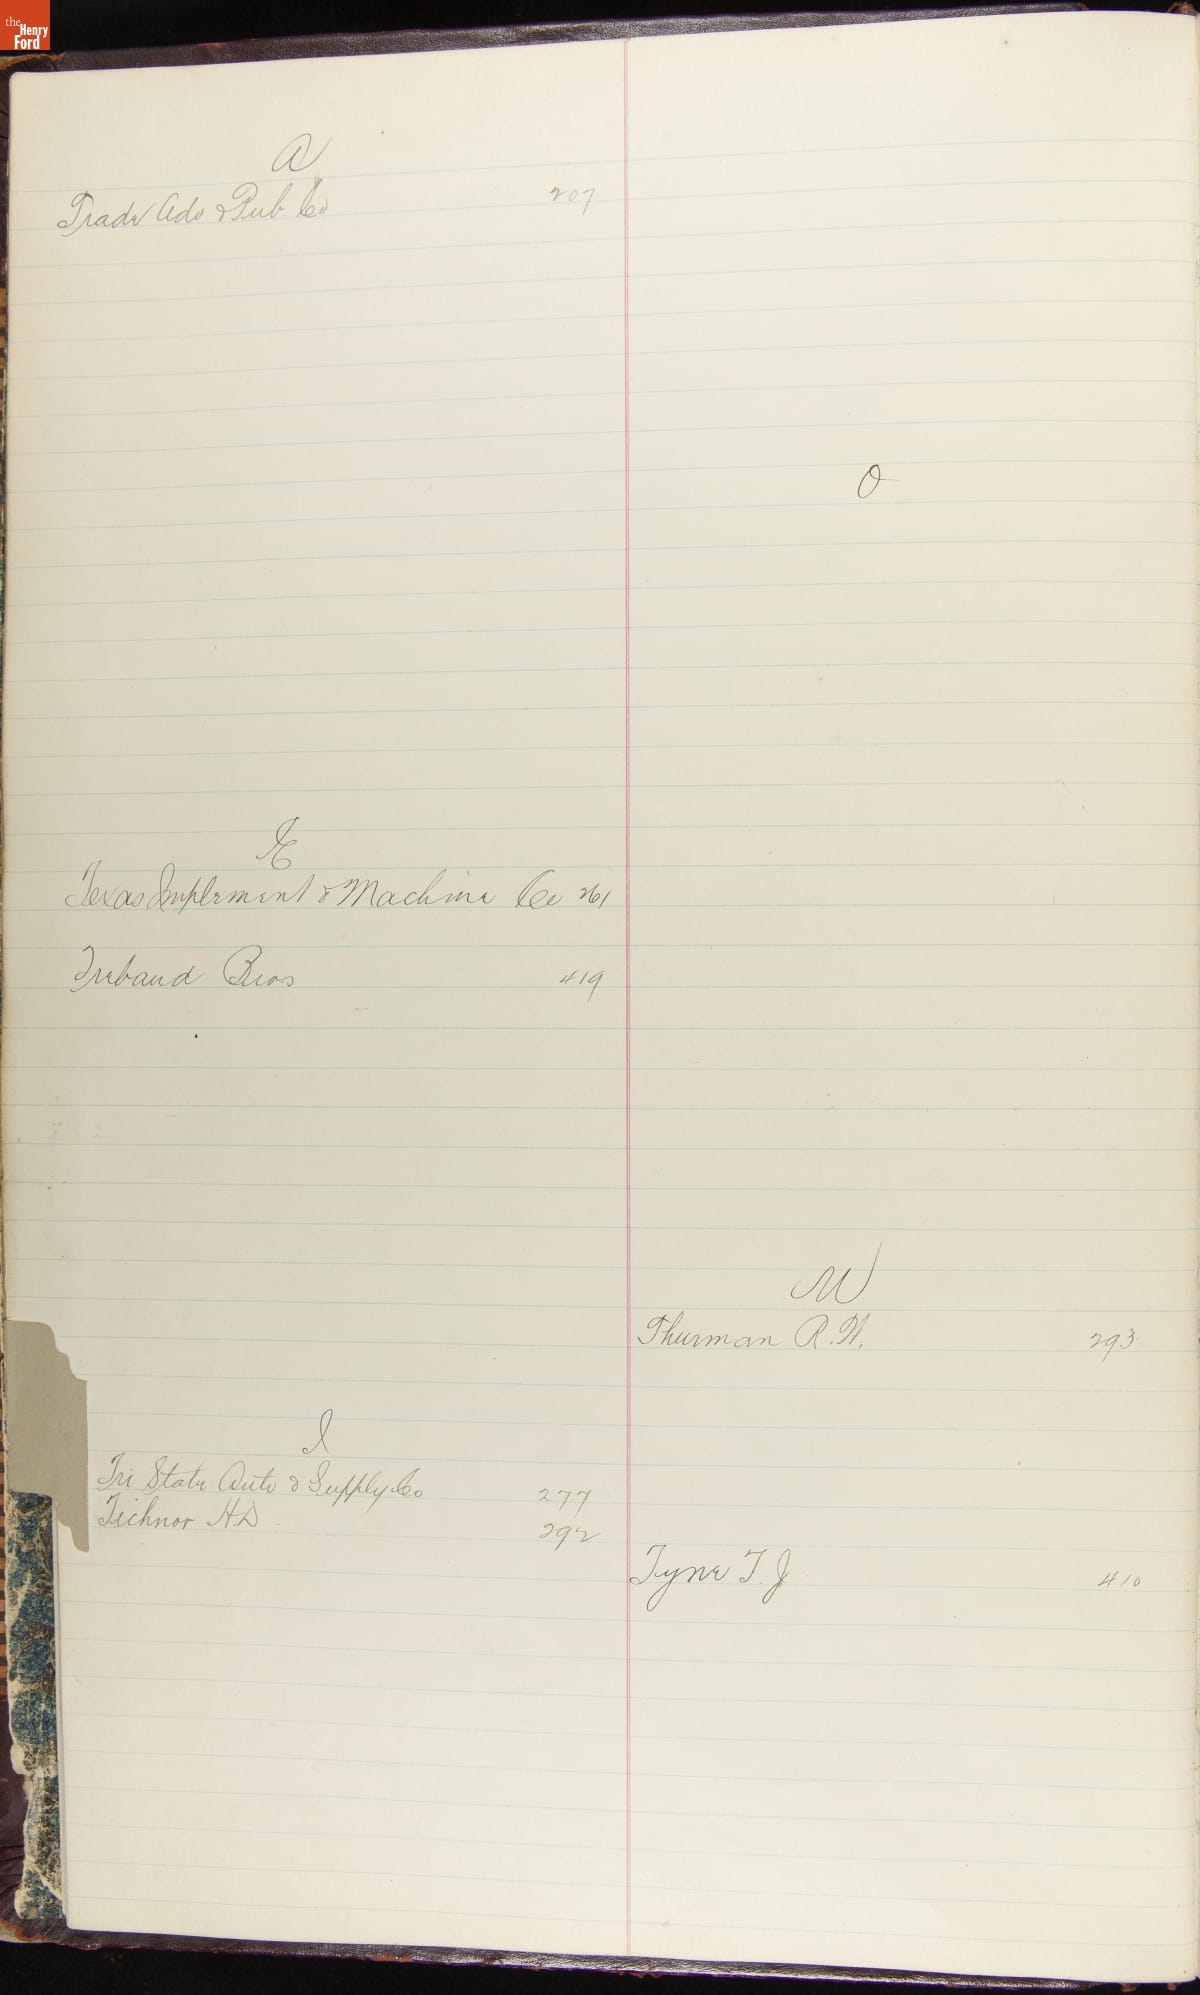 the
Henry
Ford
A
Trade Adv & Pub. Co 207
E
Texas Implement & Machine Co 261
Trebaud Bros 419
I
Tri State Auto & Supply Co 277
Tichnor H.D. 292
O
U
Thurman R. W. 293
Tyne T. J 410